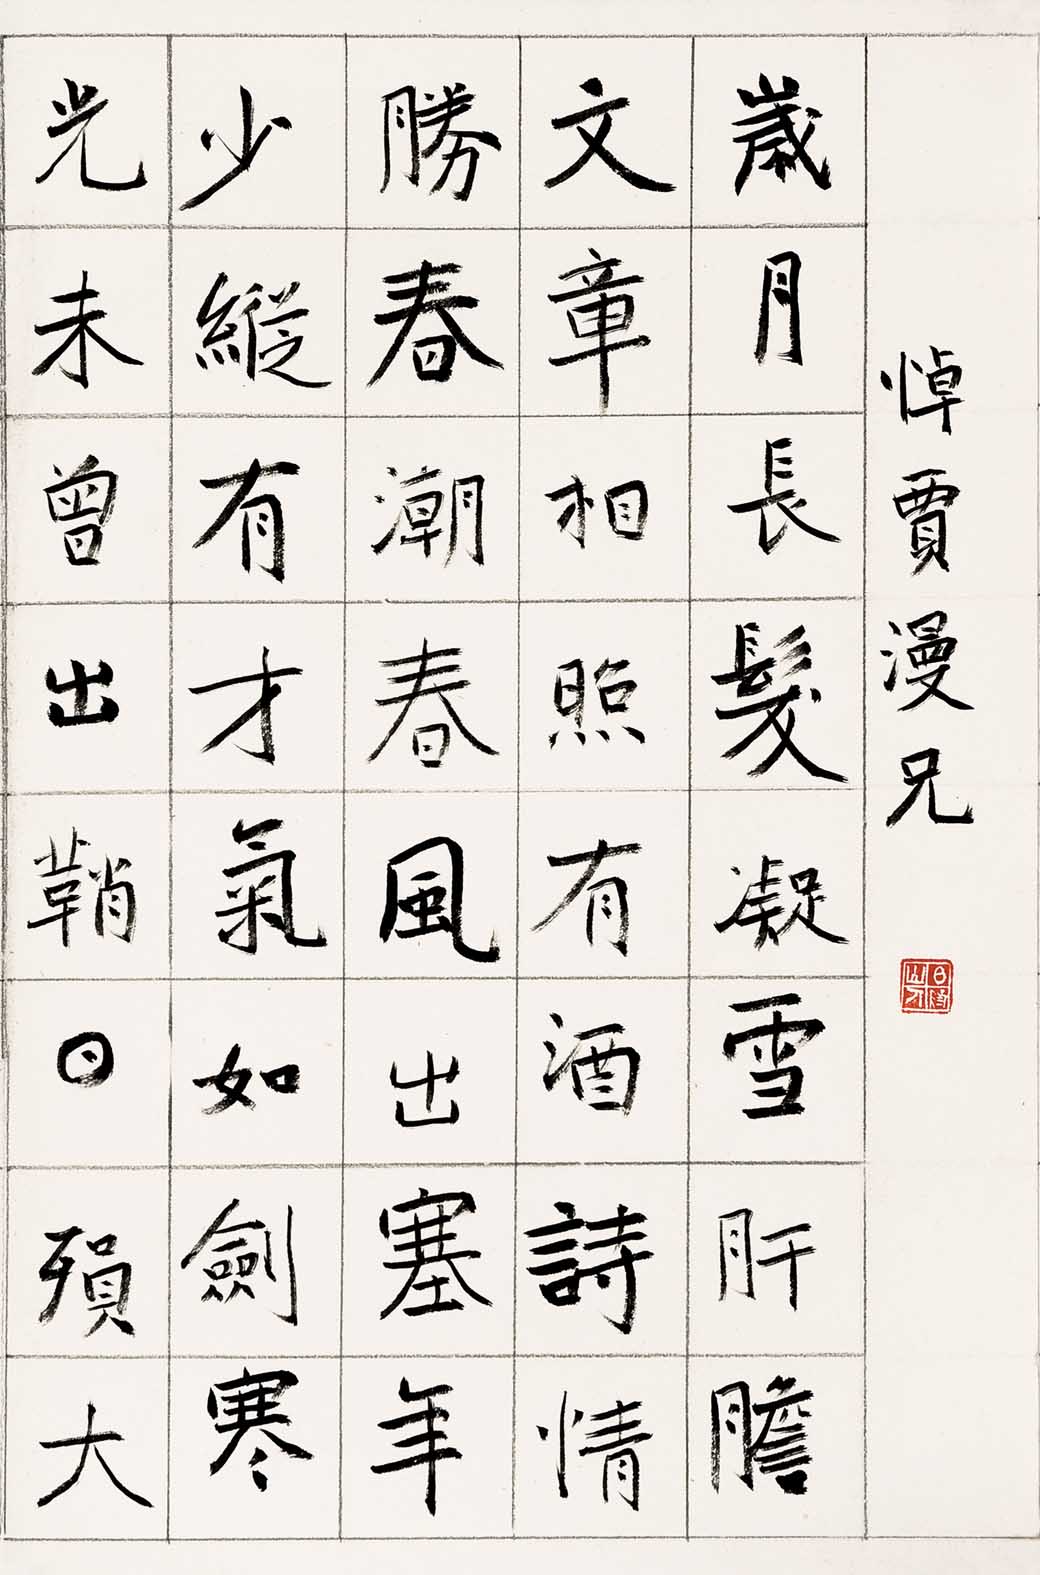 悼賈漫兄
歲月長髮凝雪肝膽
文章相照有酒詩情
勝春潮春風出塞年
少縱有才氣如劍寒
光未曾出鞘日殞大